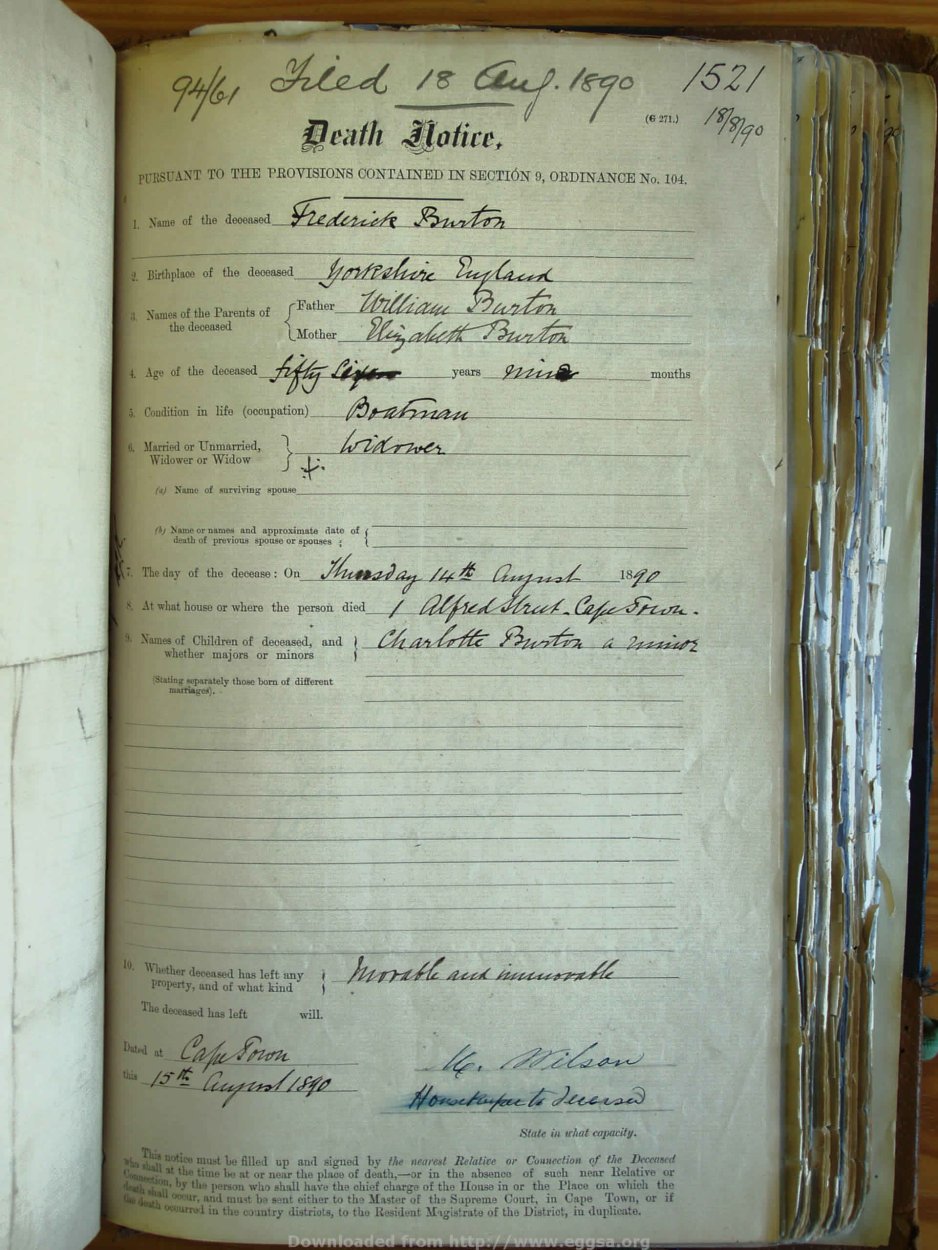 94/61 Filed 18 Aug. 1890 1521
(G 271.) 18/8/90
Death Notice.
PURSUANT TO THE PROVISIONS CONTAINED IN SECTION 9, ORDINANCE No. 104.
1. Name of the deceased Frederick Burton
2. Birthplace of the deceased Yorkshire England
3. Names of the Parents of the deceased { Father William Burton
Mother Elizabeth Burton
4. Age of the deceased Fifty years nine months
5. Condition in life (occupation) Boatman
6. Married or Unmarried, Widower or Widow } Widower
(a) Name of surviving spouse
(b) Name or names and approximate date of death of previous spouse or spouses ; {
7. The day of the decease: On Thursday 14th August 1890
8. At what house or where the person died 1 Alfred Street - Cape Town -
9. Names of Children of deceased, and whether majors or minors } Charlotte Burton a minor
(Stating separately those born of different marriages).
10. Whether deceased has left any property, and of what kind } Movable and immovable
The deceased has left will.
Dated at Cape Town
this 15th August 1890
M. Wilson
Housekeeper to deceased
State in what capacity.
This notice must be filled up and signed by the nearest Relative or Connection of the Deceased
who shall at the time be at or near the place of death,—or in the absence of such near Relative or
Connection, by the person who shall have the chief charge of the House in or the Place on which the
death shall occur, and must be sent either to the Master of the Supreme Court, in Cape Town, or if
the death occurred in the country districts, to the Resident Magistrate of the District, in duplicate.
Downloaded from http://www.eggsa.org